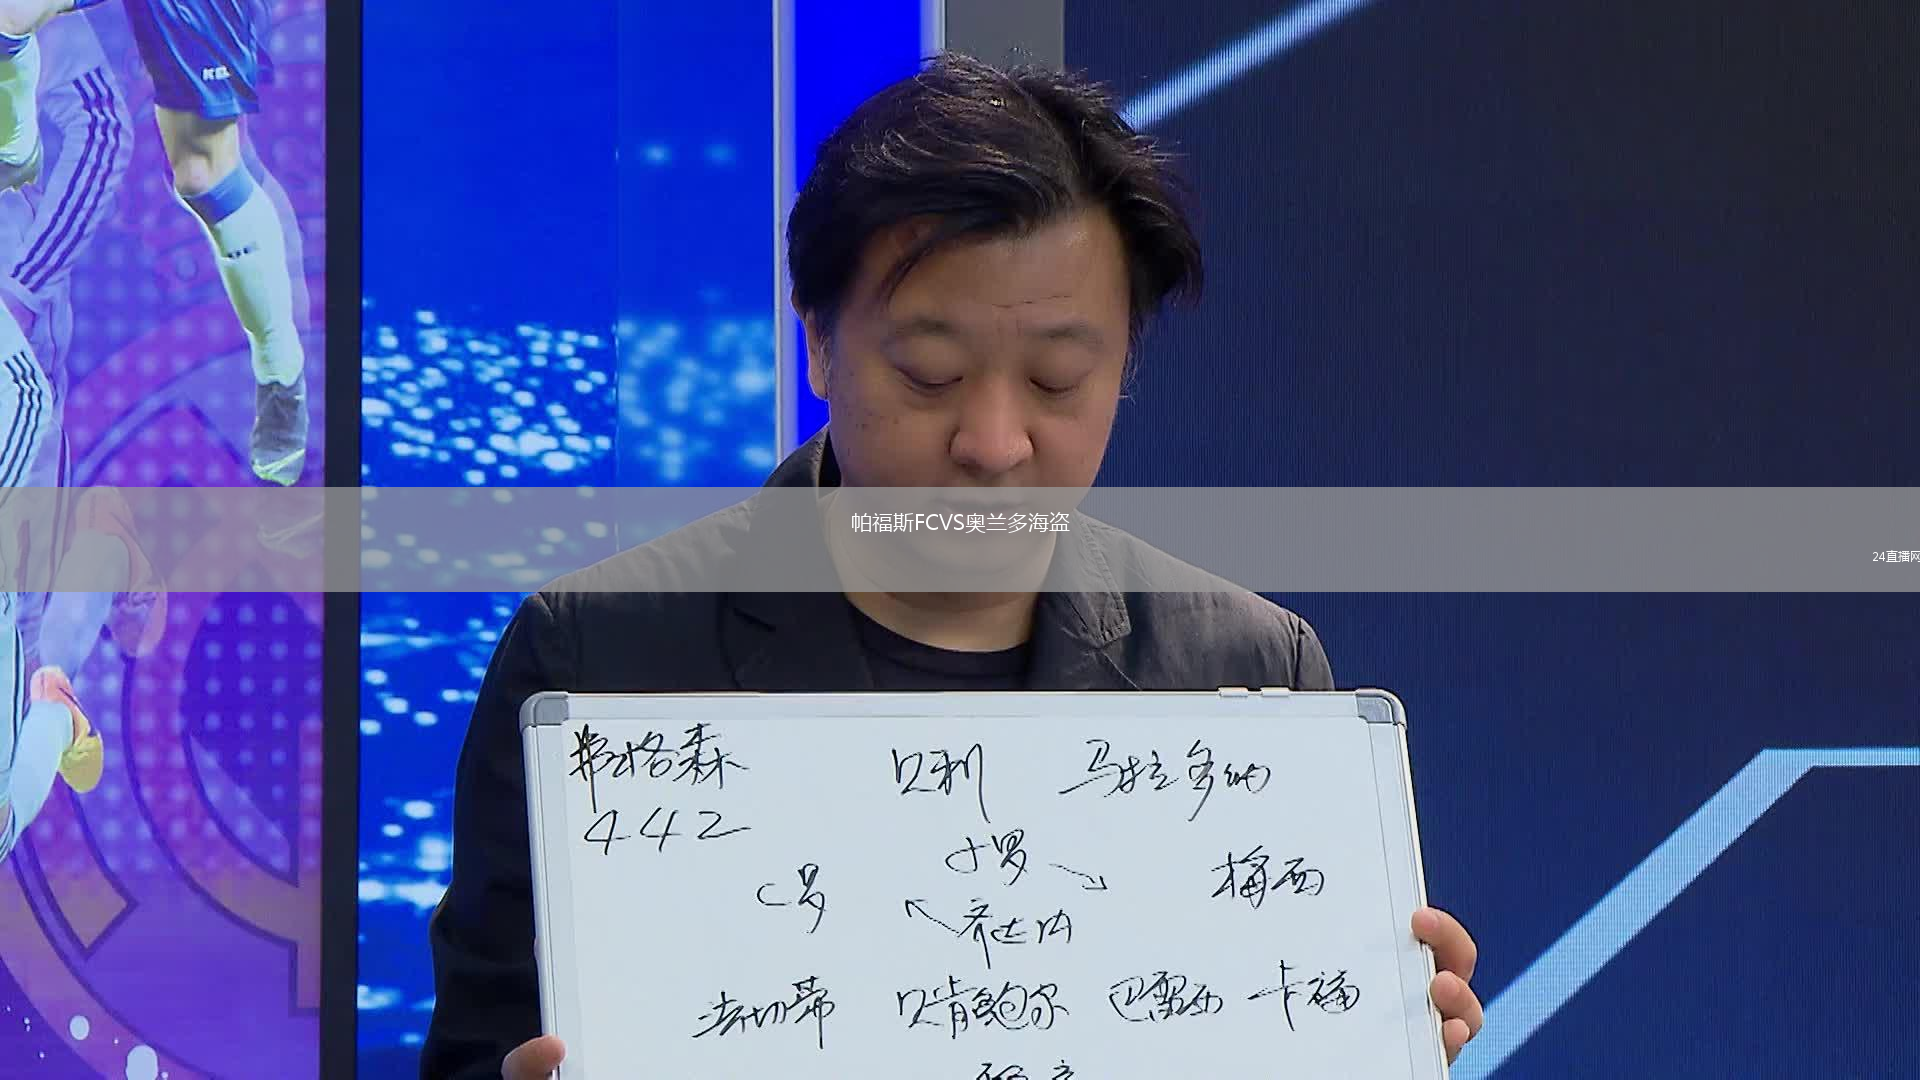 KEL
帕福斯FCVS奥兰多海盗
24直播网
弗格森 贝利 马拉多纳
442
小罗
C罗 梅西
齐达内
法切蒂 贝肯鲍尔 巴雷西 卡福